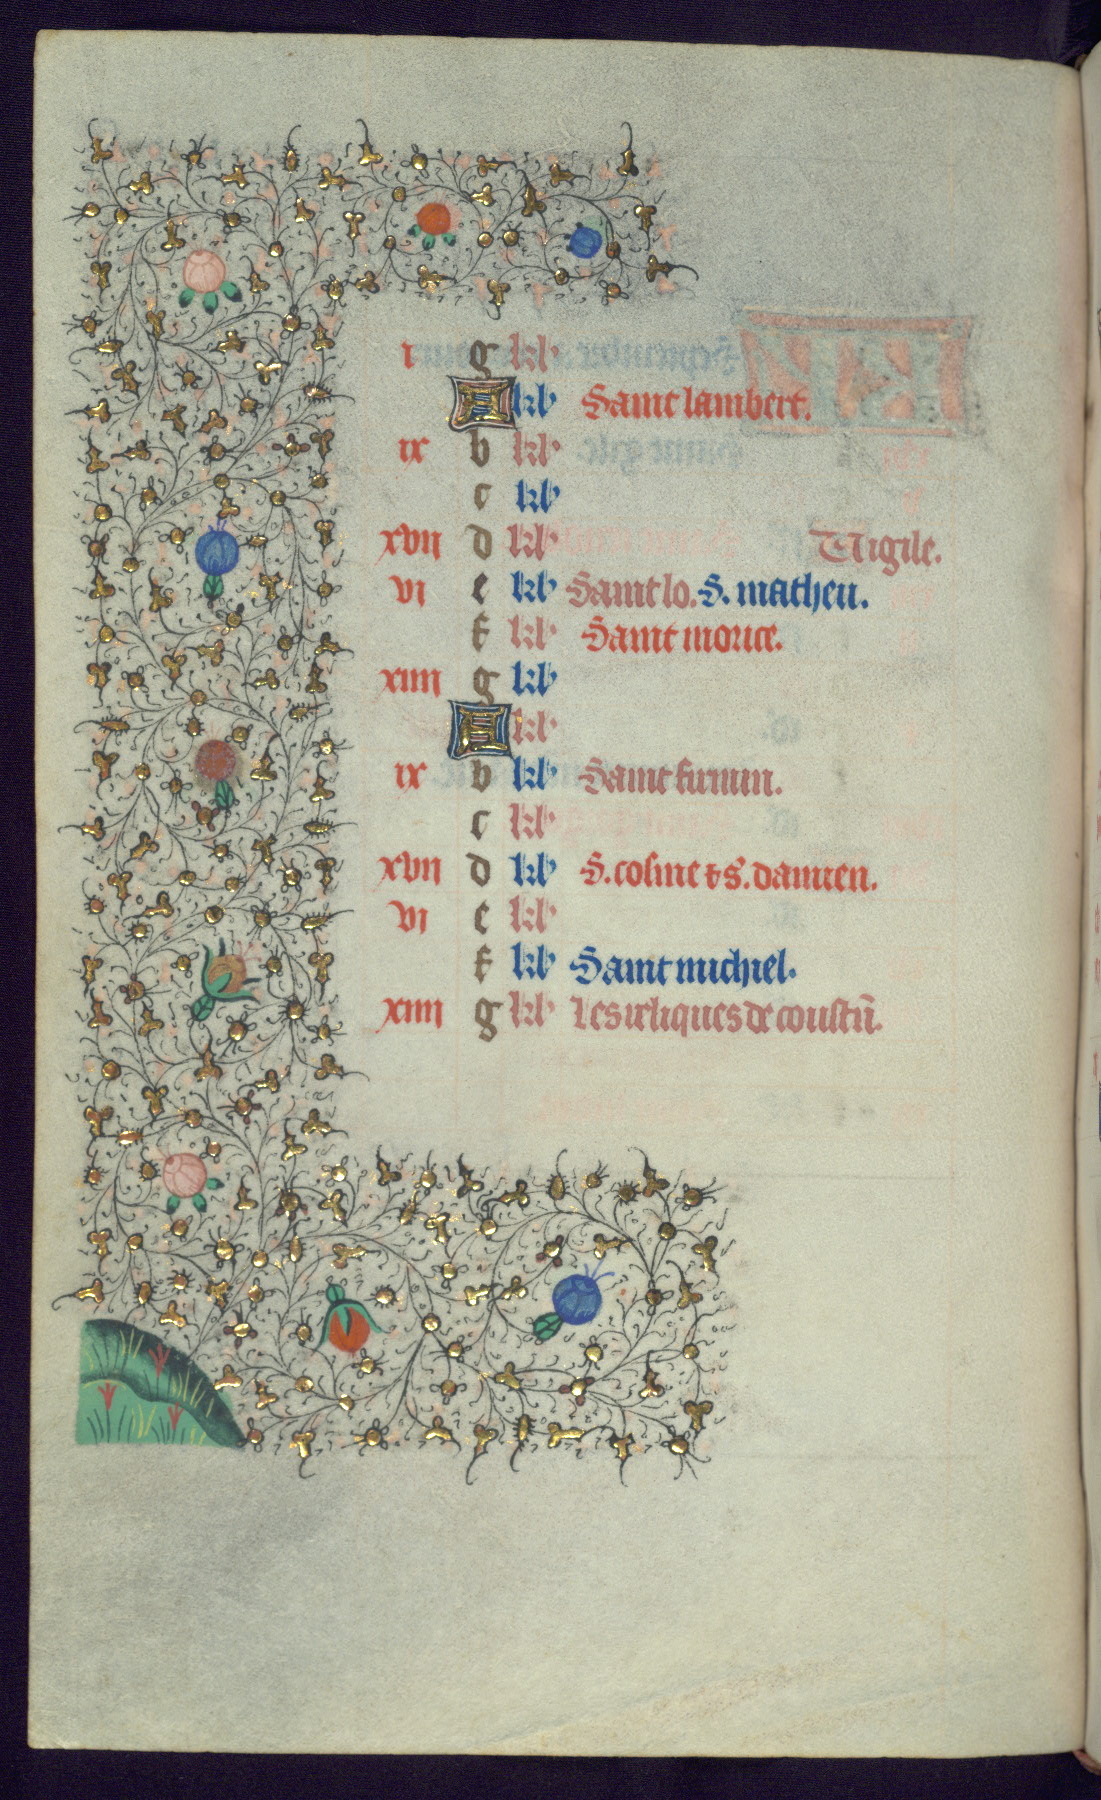 i g kł
A kł Saint lambert.
ix b kł
c kł
xvii d kł Uigile.
vi e kł Saint lo. S. matheu.
f kł Saint morice.
xiiii g kł
A kł
ix b kł Saint firmin.
c kł
xvii d kł S. cosme & s. damien.
vi e kł
f kł Saint michiel.
xiiii g kł Les reliques de coustñ.